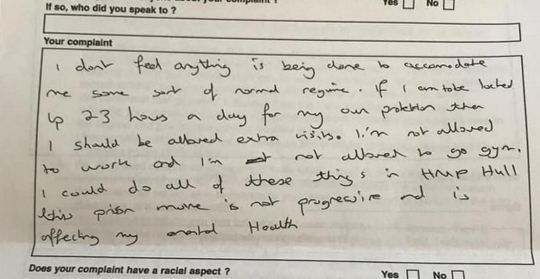 If so, who did you speak to ?
Yes No
Your complaint
I dont feel anything is being done to accomodate
me some sort of normal regime. If I am to be locked
up 23 hours a day for my own protection then
I should be allowed extra visits. I'm not allowed
to work and I'm not allowed to go gym.
I could do all of these things in HMP Hull
this prison move is not progressive and is
affecting my mental Health
Does your complaint have a racial aspect ?
Yes No